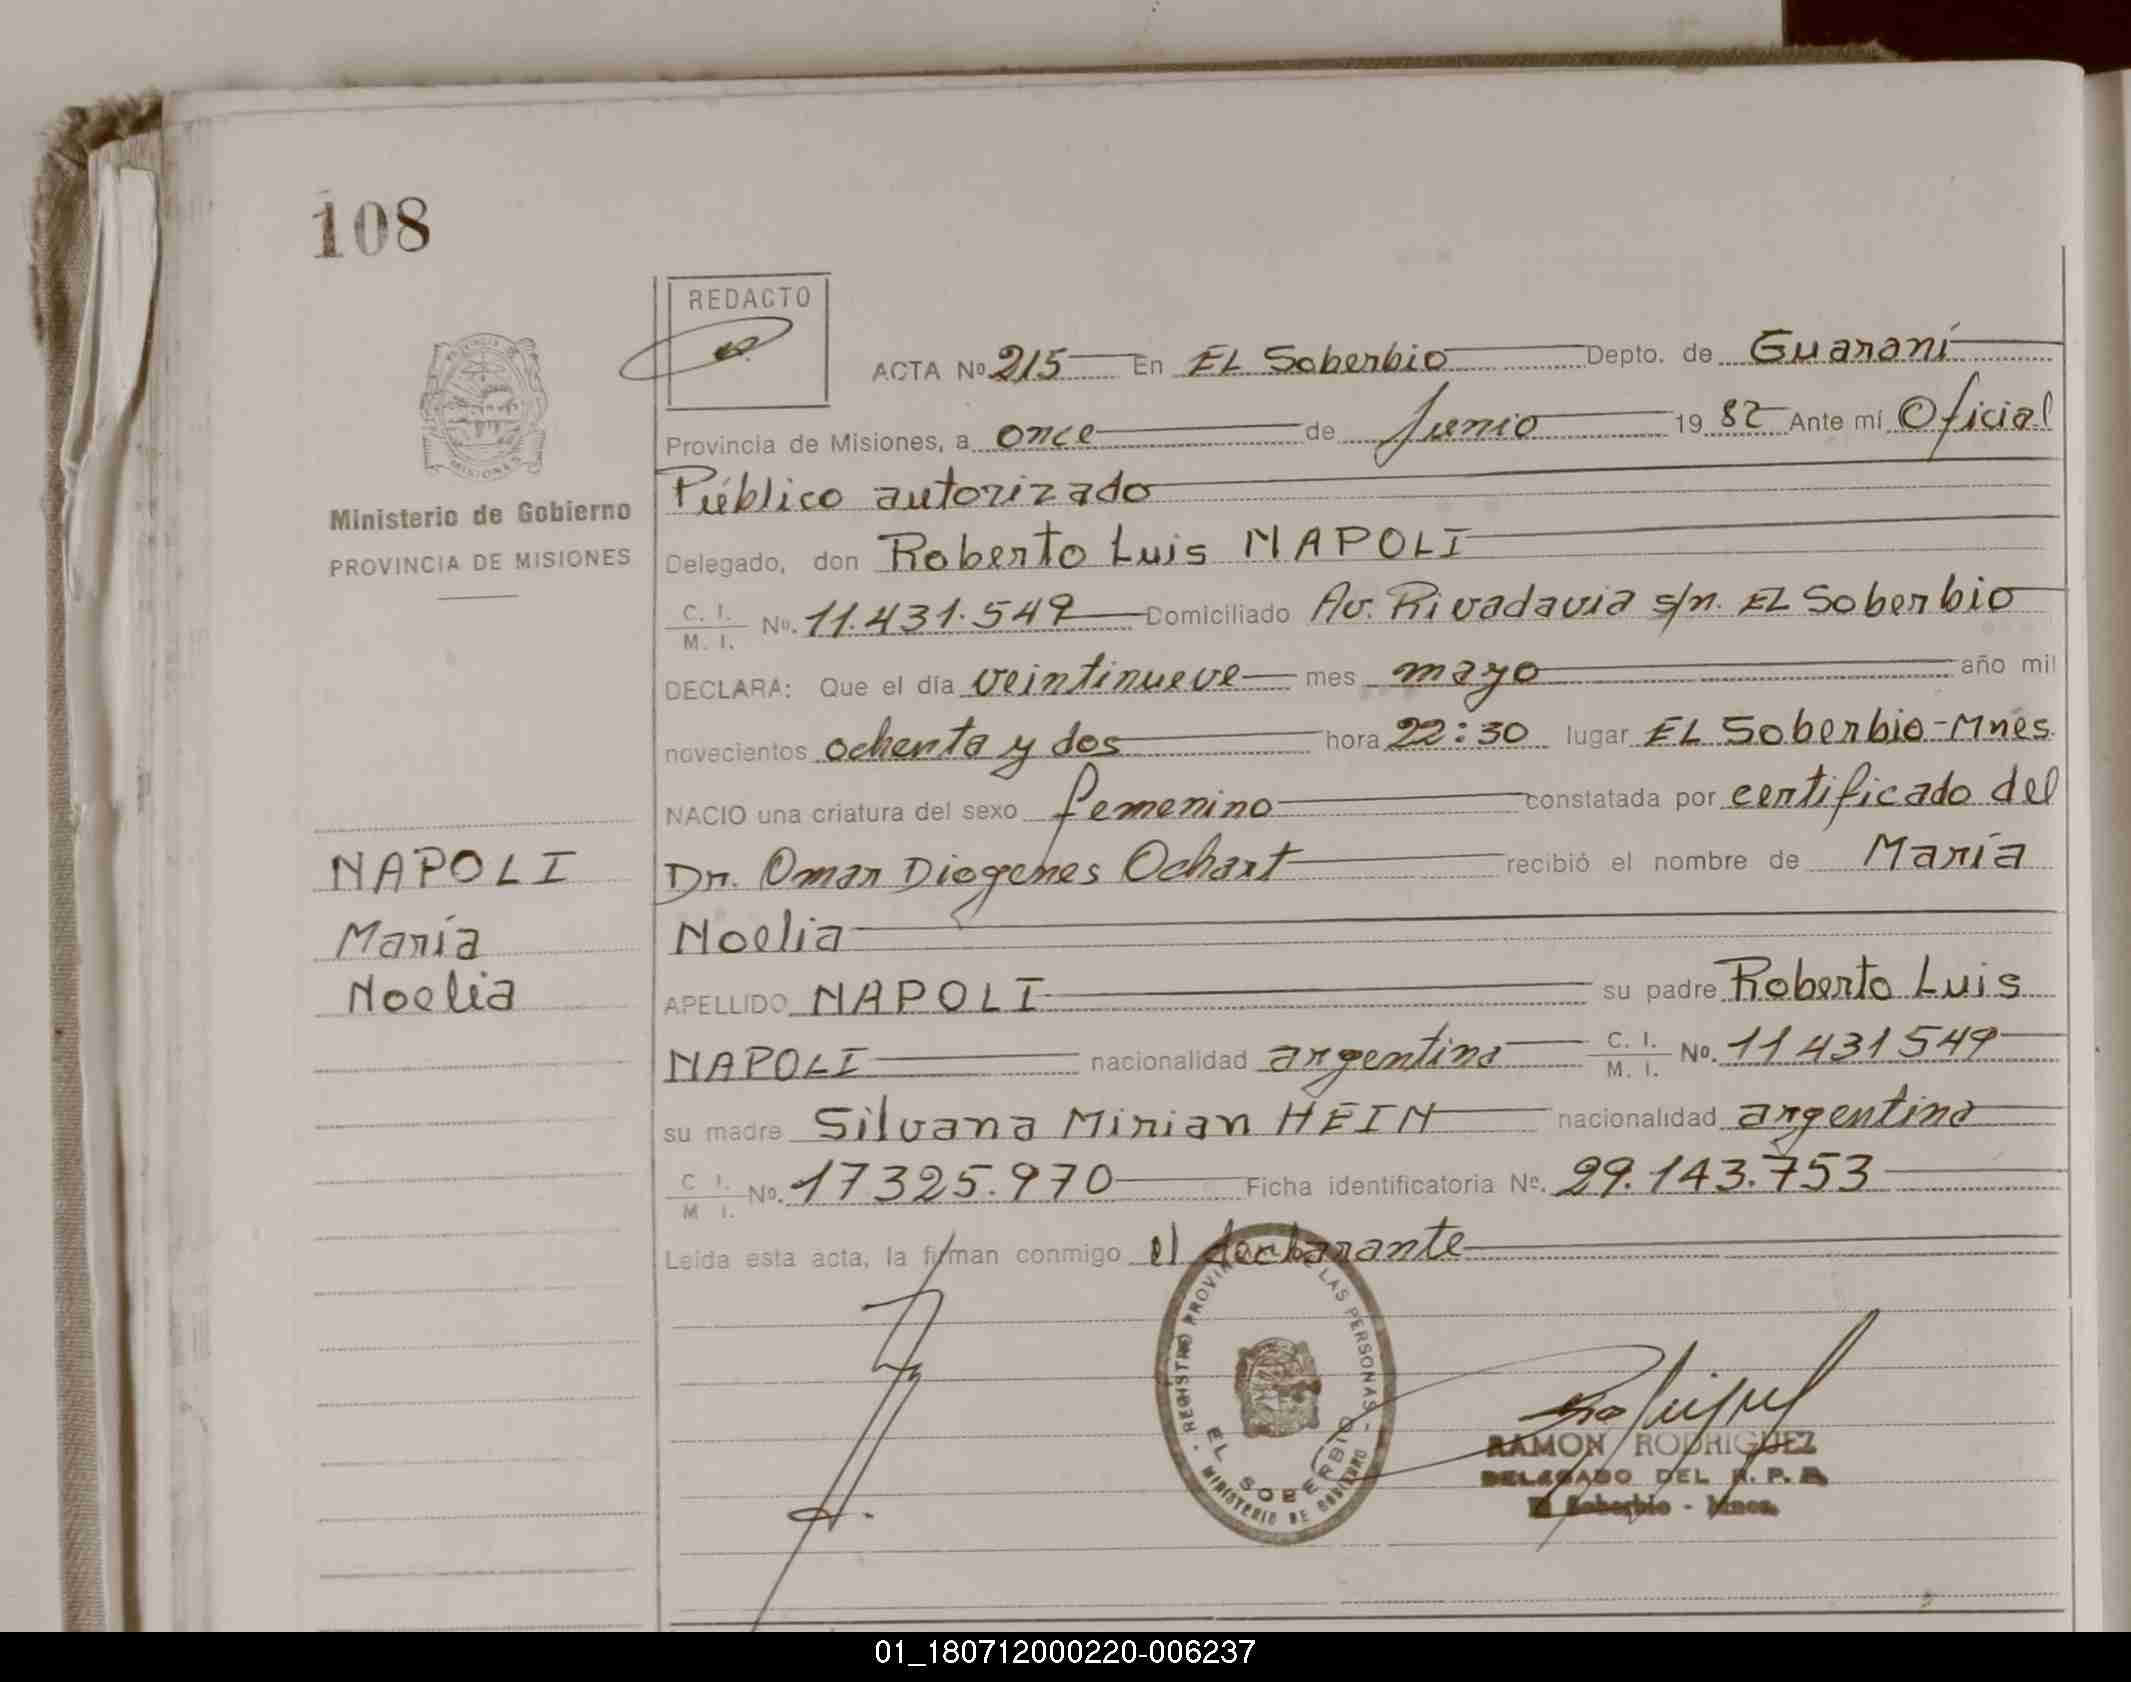 108
REDACTO
ACTA Nº 215 En EL Soberbio Depto. de Guaraní
Provincia de Misiones, a once de Junio 19 82 Ante mi Oficial
Público autorizado
Delegado, don Roberto Luis NAPOLI
C. I.
M. I. Nº. 11.431.549 Domiciliado Av. Rivadavia s/n. EL Soberbio
DECLARA: Que el día veintinueve mes mayo año mil
novecientos ochenta y dos hora 22:30 lugar EL Soberbio-Mnes.
NACIO una criatura del sexo femenino constatada por certificado del
Dr. Omar Diogenes Ochart recibió el nombre de María
Noelia
APELLIDO NAPOLI su padre Roberto Luis
NAPOLI nacionalidad argentina C. I.
M. I. Nº. 11431549
su madre Silvana Mirian HEIN nacionalidad argentina
C. I.
M. I. Nº. 17325.970 Ficha identificatoria Nº. 29.143.753
Leida esta acta, la firman conmigo el declarante
PROVINCIA DE MISIONES
Ministerio de Gobierno
PROVINCIA DE MISIONES
NAPOLI
María
Noelia
REGISTRO PROVINCIAL DE LAS PERSONAS
EL SOBERBIO
MINISTERIO DE GOBIERNO
RAMON RODRIGUEZ
DELEGADO DEL R. P. P.
El Soberbio - Mnes.
01_180712000220-006237